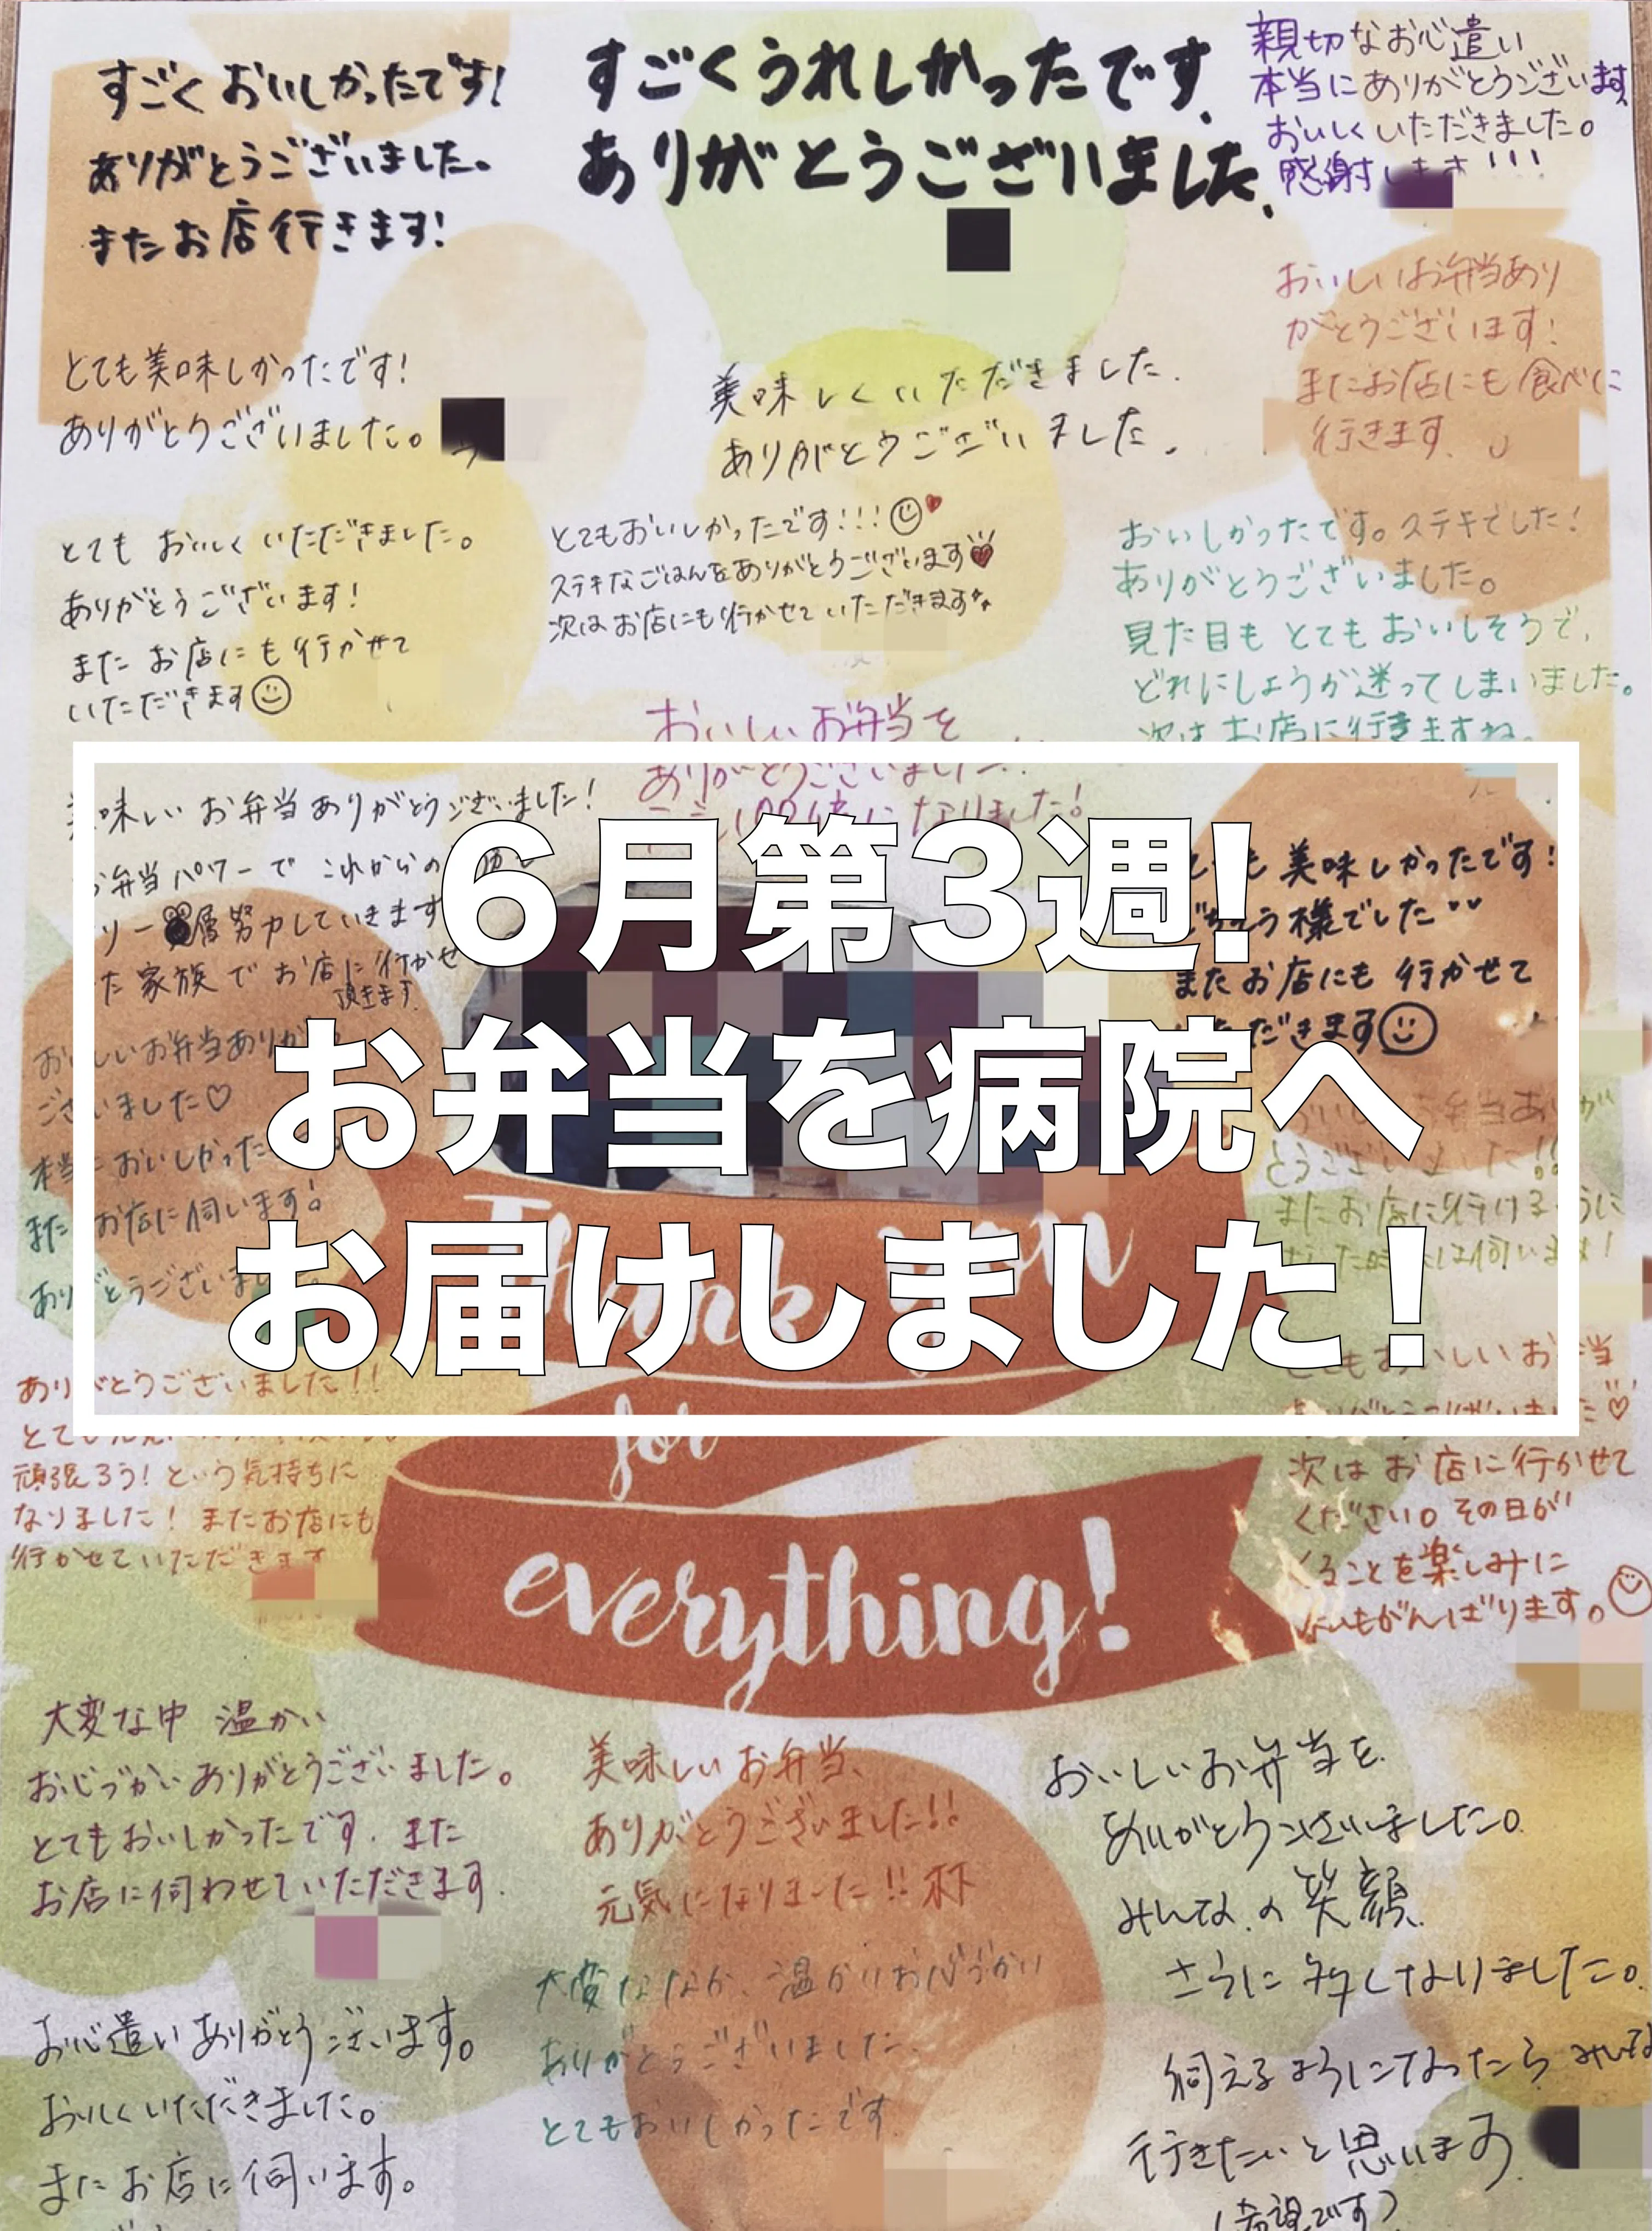 すごくおいしかったです!
ありがとうございました。
またお店行きます!
すごくうれしかったです.
ありがとうございました.
親切なお心遣い
本当にありがとうございます
おいしくいただきました。
感謝します!!!
おいしいお弁当あり
がとうございます!
またお店にも食べに
行きます.
とても美味しかったです!
ありがとうございました。
美味しくいただきました.
ありがとうございました.
とても おいしく いただきました。
ありがとうございます!
また お店にも行かせて
いただきます
とてもおいしかったです!!!
ステキなごはんをありがとうございます
次はお店にも行かせていただきます
おいしかったです。ステキでした!
ありがとうございました。
見た目も とても おいしそうで、
どれにしようか迷ってしまいました。
次は お店に行きますね。
おいしいお弁当を
ありがとうございました!
になりました!
味しい お弁当ありがとうございました!
弁当パワーで これからの
層努力していきます
た 家族で お店に行かせ
頂きます
6月第3週!
お弁当を病院へ
お届けしました!
美味しかったです!
ごちそう様でした
またお店にも 行かせて
いただきます
おいしいお弁当ありがとう
ございました♡
本当においしかった
また お店に伺います!
ありがとうございました
とうございました!!
またお店に行けるように
Thank you
for
everything!
ありがとうございました!!
頑張ろう! という気持ちに
なりました! またお店にも
行かせていただきます
とてもおいしいお弁当
ありがとうございました♡
次は お店に行かせて
ください。その日が
くることを楽しみに
がんばります。
大変な中 温かい
お心づかいありがとうございました。
とてもおいしかったです. また
お店に伺わせていただきます.
美味しいお弁当、
ありがとうございました!!
元気になりました!!
おいしいお弁当を.
ありがとうございました。
みんなの笑顔.
さらに多くなりました。
伺えるようになったら みんな
行きたいと思います.
(希望です)
大変ななか、温かいお心づかい
ありがとうございました.
とてもおいしかったです.
お心遣いありがとうございます。
おいしくいただきました。
またお店に伺います。